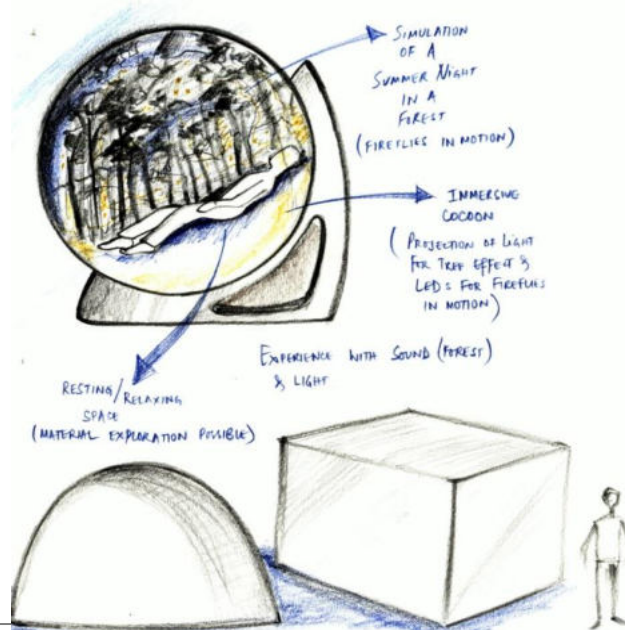 SIMULATION
OF A
SUMMER NIGHT
IN A
FOREST
(FIREFLIES IN MOTION)
IMMERSIVE
COCOON
(PROJECTION OF LIGHT
FOR TREE EFFECT &
LEDs FOR FIREFLIES
IN MOTION)
EXPERIENCE WITH SOUND (FOREST)
& LIGHT
RESTING/RELAXING
SPACE
(MATERIAL EXPLORATION POSSIBLE)